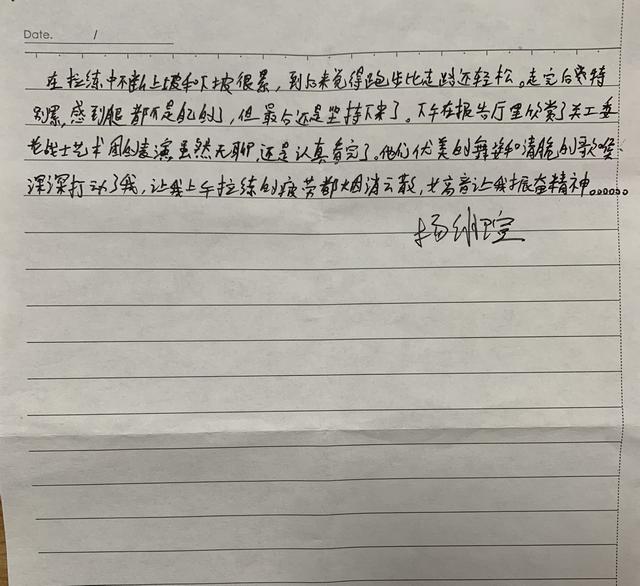 Date. /
在拉练中不断上坡和下坡很累，到后来觉得跑步比走路还轻松。走完后我特
别累，感到腿都不是自己的了，但最后还是坚持下来了。下午在报告厅里欣赏了关工委
老战士艺术团的表演虽然无聊，还是认真看完了。他们优美的舞姿和清脆的歌喉
深深打动了我，让我上午拉练的疲劳都烟消云散，女高音让我振奋精神。。。。。。
杨